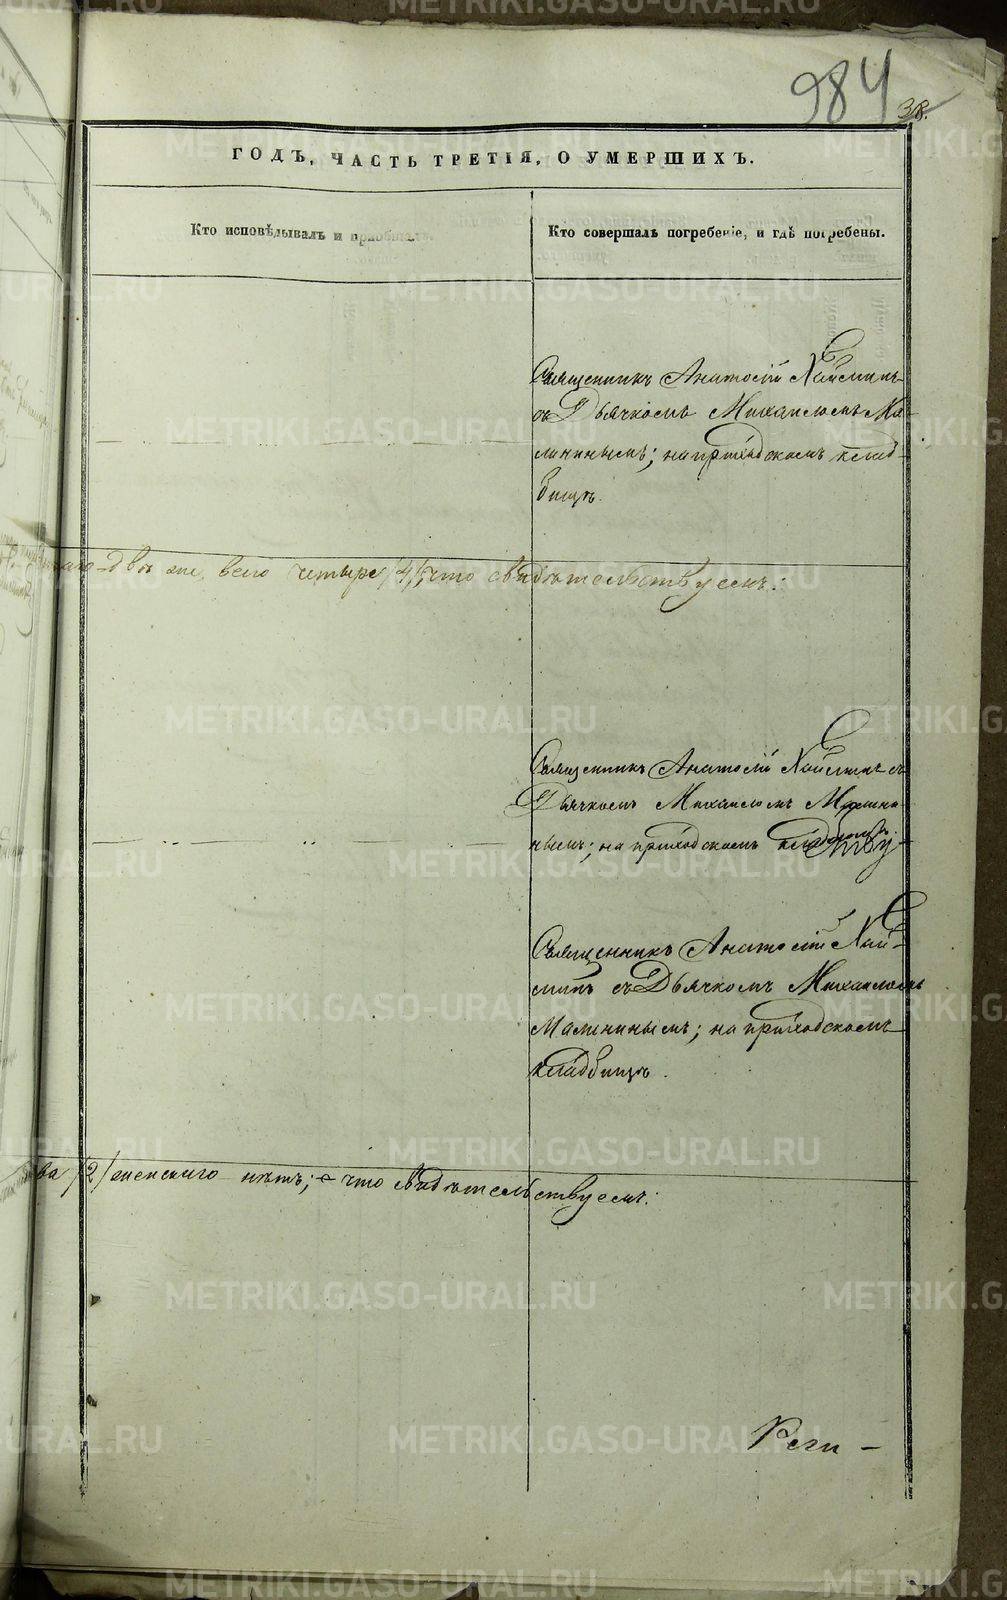 984
38.
ГОДЪ, ЧАСТЬ ТРЕТІЯ, О УМЕРШИХЪ.
Кто исповѣдывалъ и пріобщалъ.
Кто совершалъ погребеніе, и гдѣ погребены.
Священникъ Анатолій
съ Дьячкомъ Михаиломъ Ма-
лининымъ; на приходскомъ клад-
бищѣ.
двѣ же, всего четыре /4/, что свидѣтельствуемъ:
Священникъ Анатолій съ
Дьячкомъ Михаиломъ Малини-
нымъ; на приходскомъ
Священникъ Анатолій
съ Дьячкомъ Михаиломъ
Малининымъ; на приходскомъ
кладбищѣ.
два /2/ женскаго нѣтъ; что свидѣтельствуемъ:
METRIKI.GASO-URAL.RU